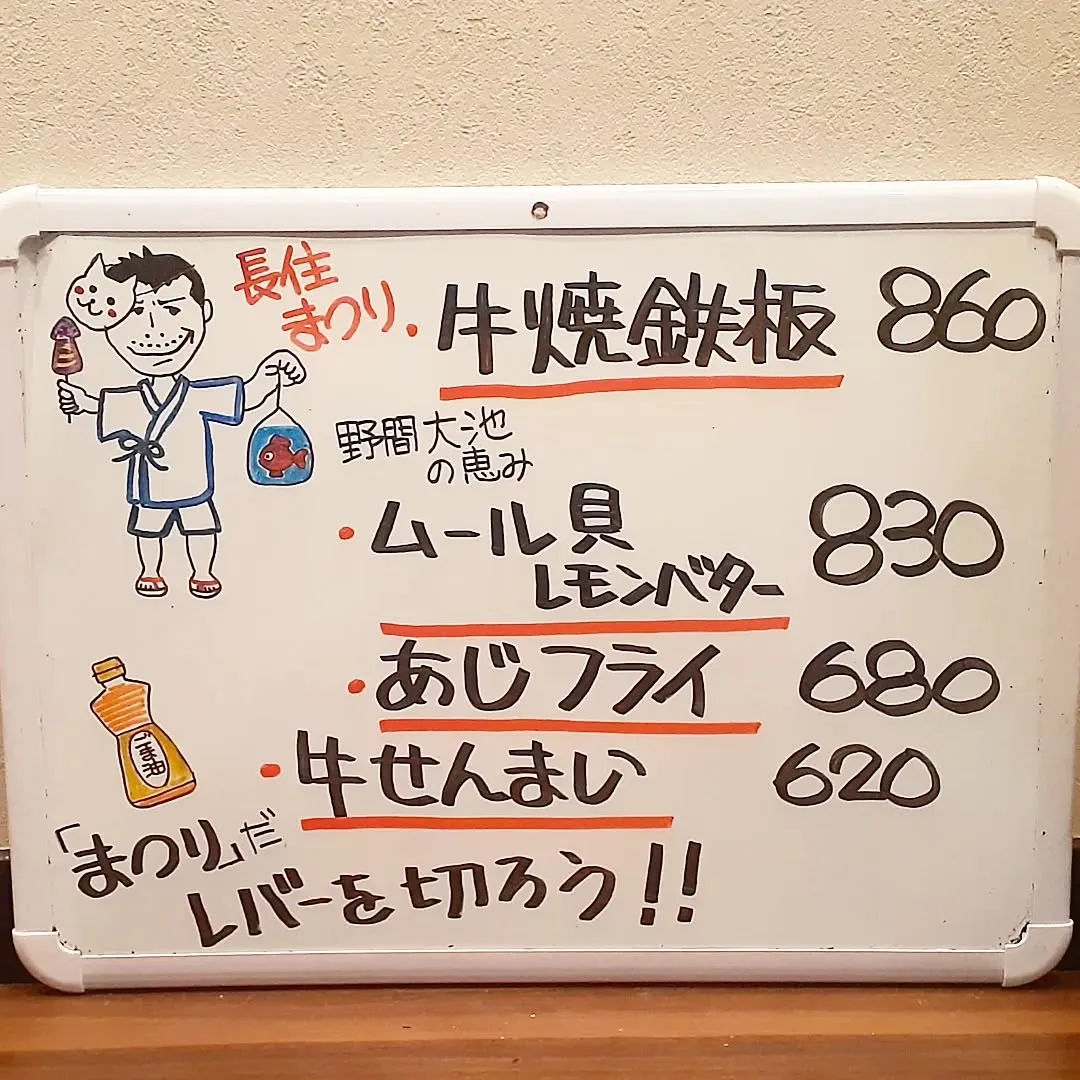 長住
まつり
・牛焼鉄板 860
野間大池
の恵み
・ムール貝 830
レモンバター
・あじフライ 680
・牛せんまい 620
ごま油
「まつり」だ
レバーを切ろう!!